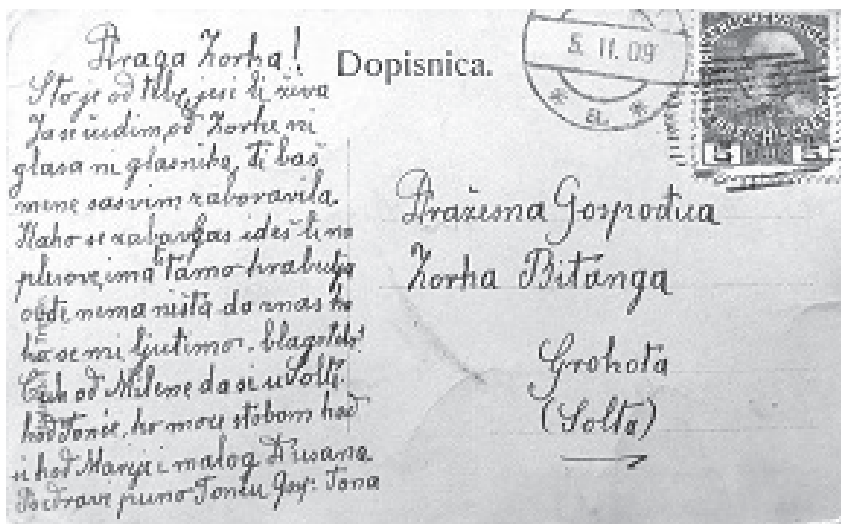 Draga Zorka!
Što je od tebe, jesi li živa
Ja se čudim, od Zorke ni
glasa ni glasnika, ti baš
mene sasvim zaboravila.
Kako se zabavljaš ideš li na
plesove, ima tamo krabulja
ovde nema ništa da znaš ko
ko se mi ljutimo. blago tebi!
Čuh od Milene da si u Šolti
kod Tonće, ko more stobom kod
i kod Marije i malog Dusana
Pozdravi puno Toncu Gosp: Tona
Dopisnica.
5. II. 09
Dražesna Gospođica
Zorka Bitanga
Grohota
(Šolta)